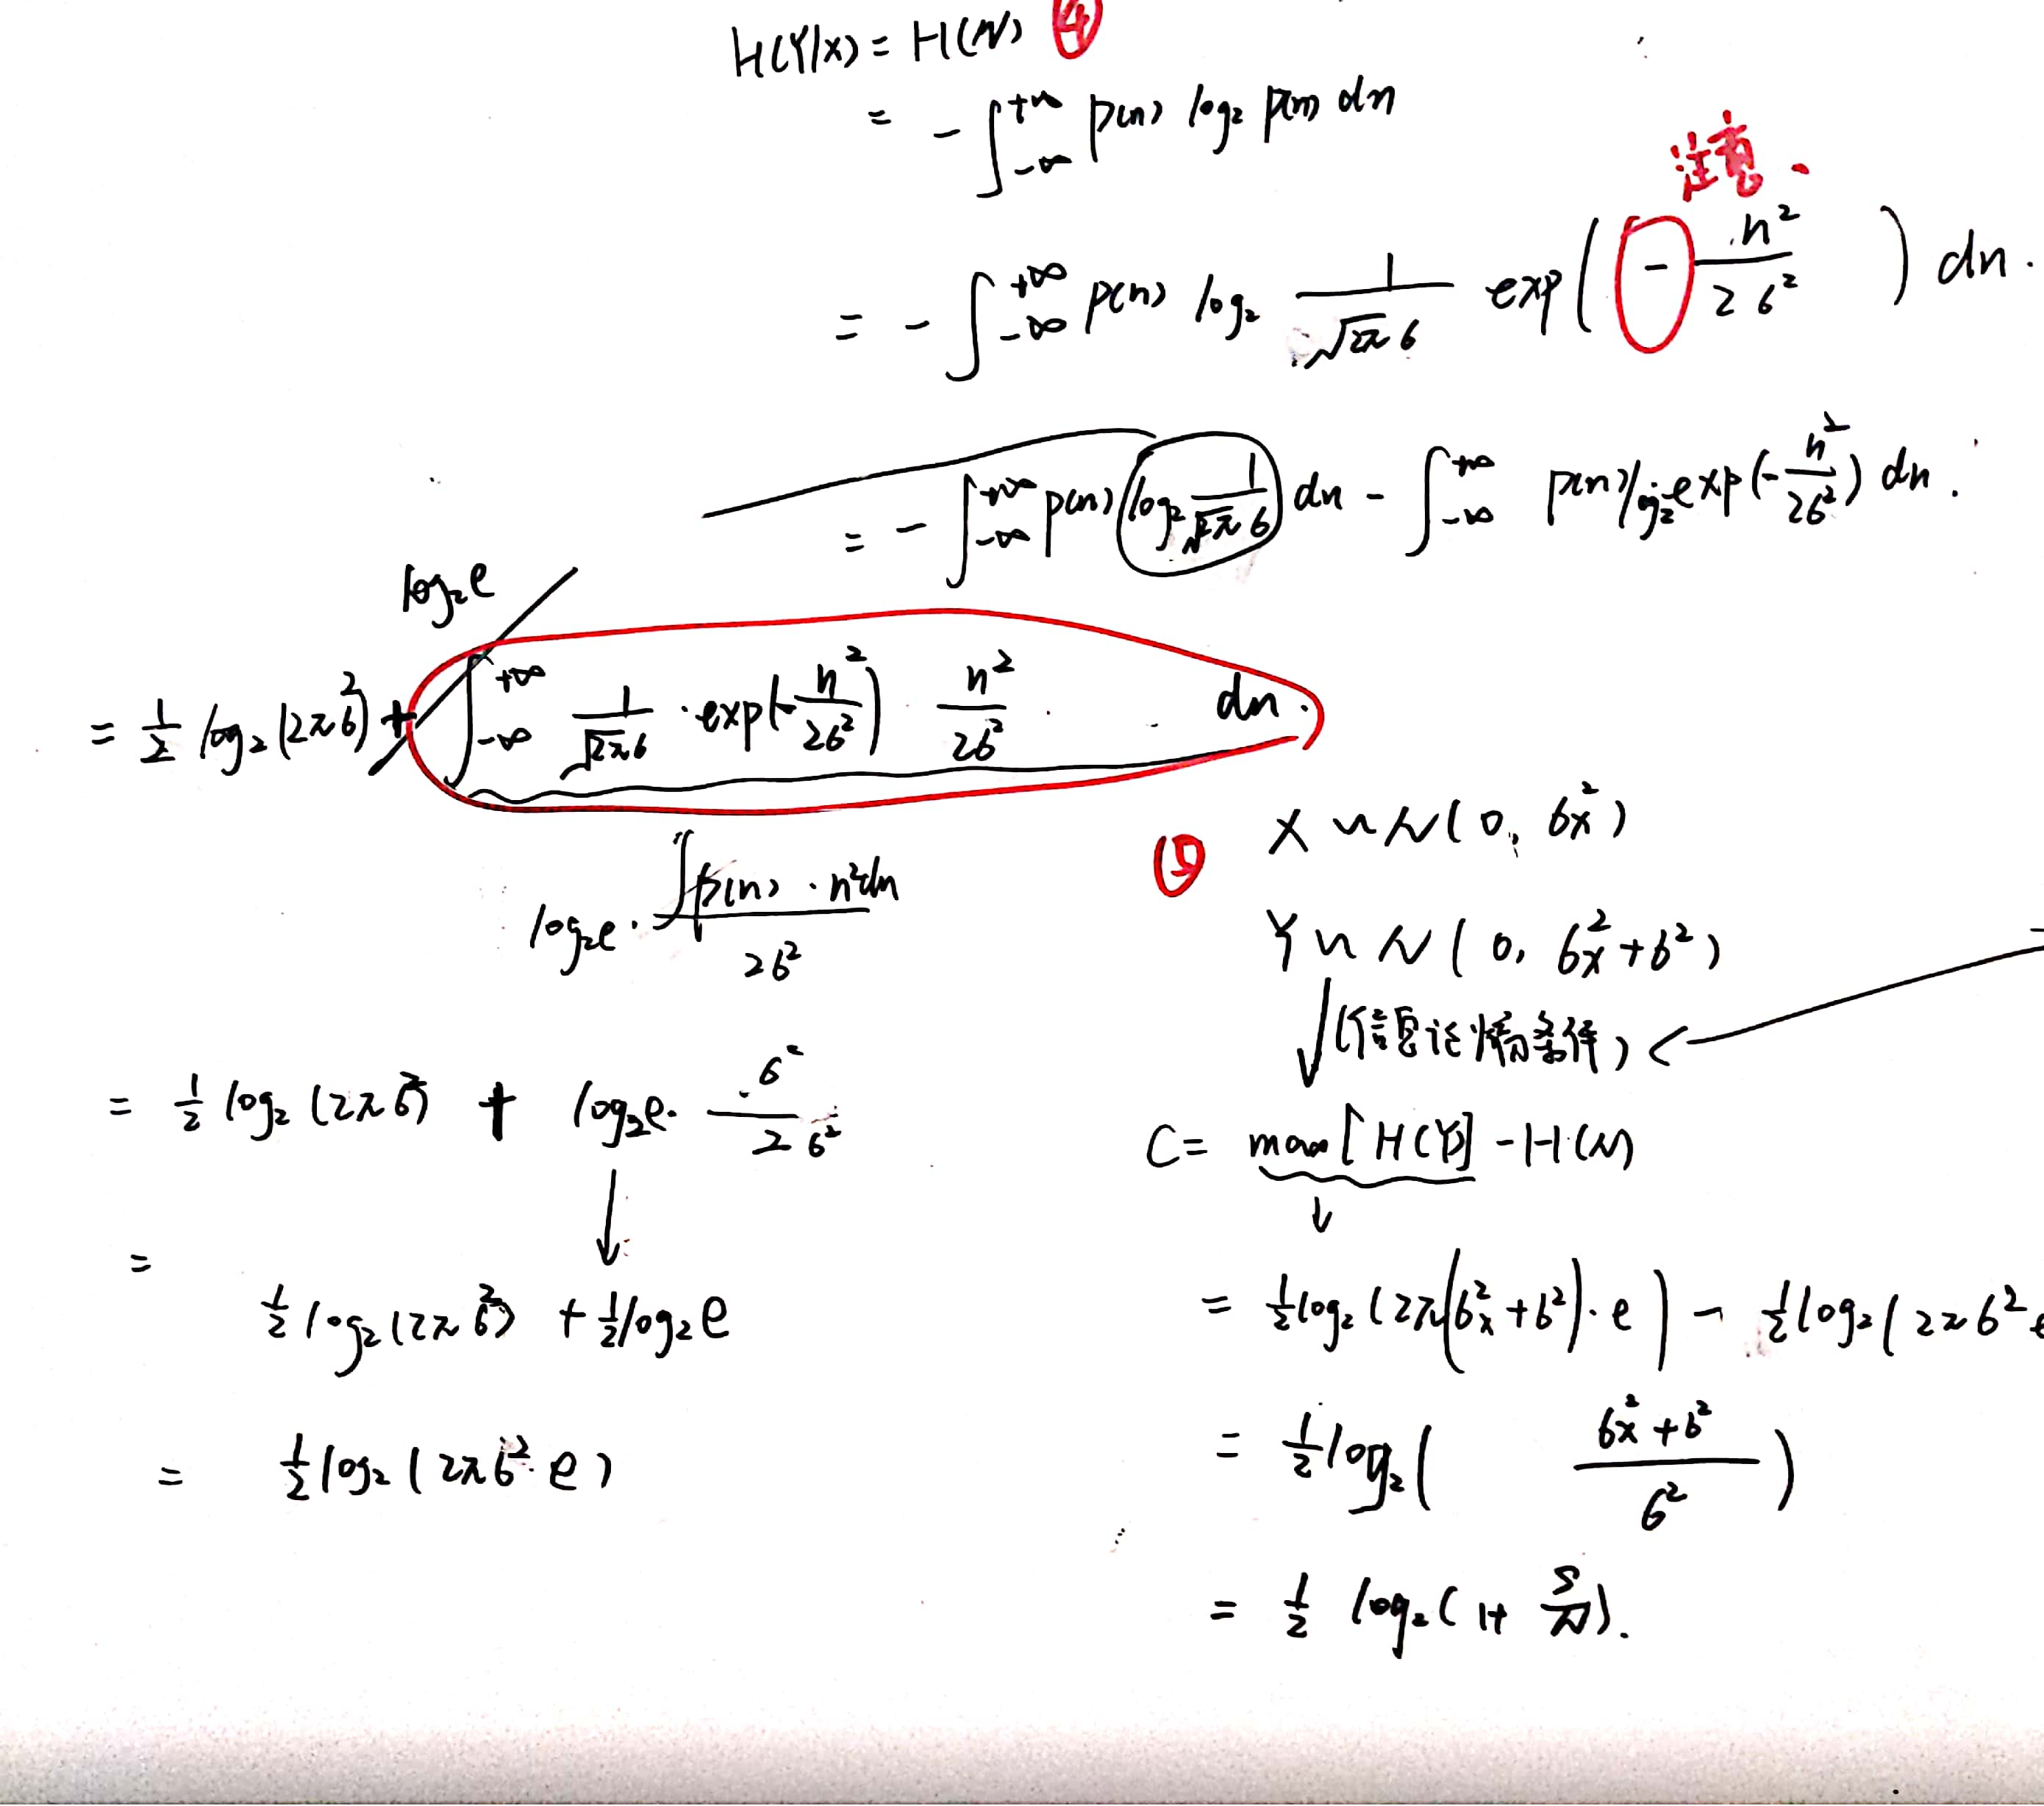 H(Y|X) = H(N) ④
= - ∫_{-∞}^{+∞} p(n) log₂ p(n) dn
注意.
= - ∫_{-∞}^{+∞} p(n) log₂ \frac{1}{\sqrt{2π}σ} exp( - \frac{n²}{2σ²} ) dn.
= - ∫_{-∞}^{+∞} p(n) log₂ \frac{1}{\sqrt{2π}σ} dn - ∫_{-∞}^{+∞} p(n) log₂ exp(-\frac{n²}{2σ²}) dn.
log₂e
= \frac{1}{2} log₂(2πσ²) + ∫_{-∞}^{+∞} \frac{1}{\sqrt{2π}σ} · exp(-\frac{n²}{2σ²}) \frac{n²}{2σ²} · dn.
log₂e · \frac{∫p(n) · n²dn}{2σ²}
= \frac{1}{2} log₂(2πσ²) + log₂e · \frac{σ²}{2σ²}
= \frac{1}{2} log₂(2πσ²) + \frac{1}{2} log₂e
= \frac{1}{2} log₂(2πσ² · e)
⑤ X ~ N(0, σx²)
Y ~ N(0, σx² + σ²)
(信息论熵条件)
C = max[H(Y)] - H(N)
= \frac{1}{2} log₂(2π(σx² + σ²) · e) - \frac{1}{2} log₂(2πσ² e
= \frac{1}{2} log₂( \frac{σx² + σ²}{σ²} )
= \frac{1}{2} log₂(1 + \frac{S}{N}).